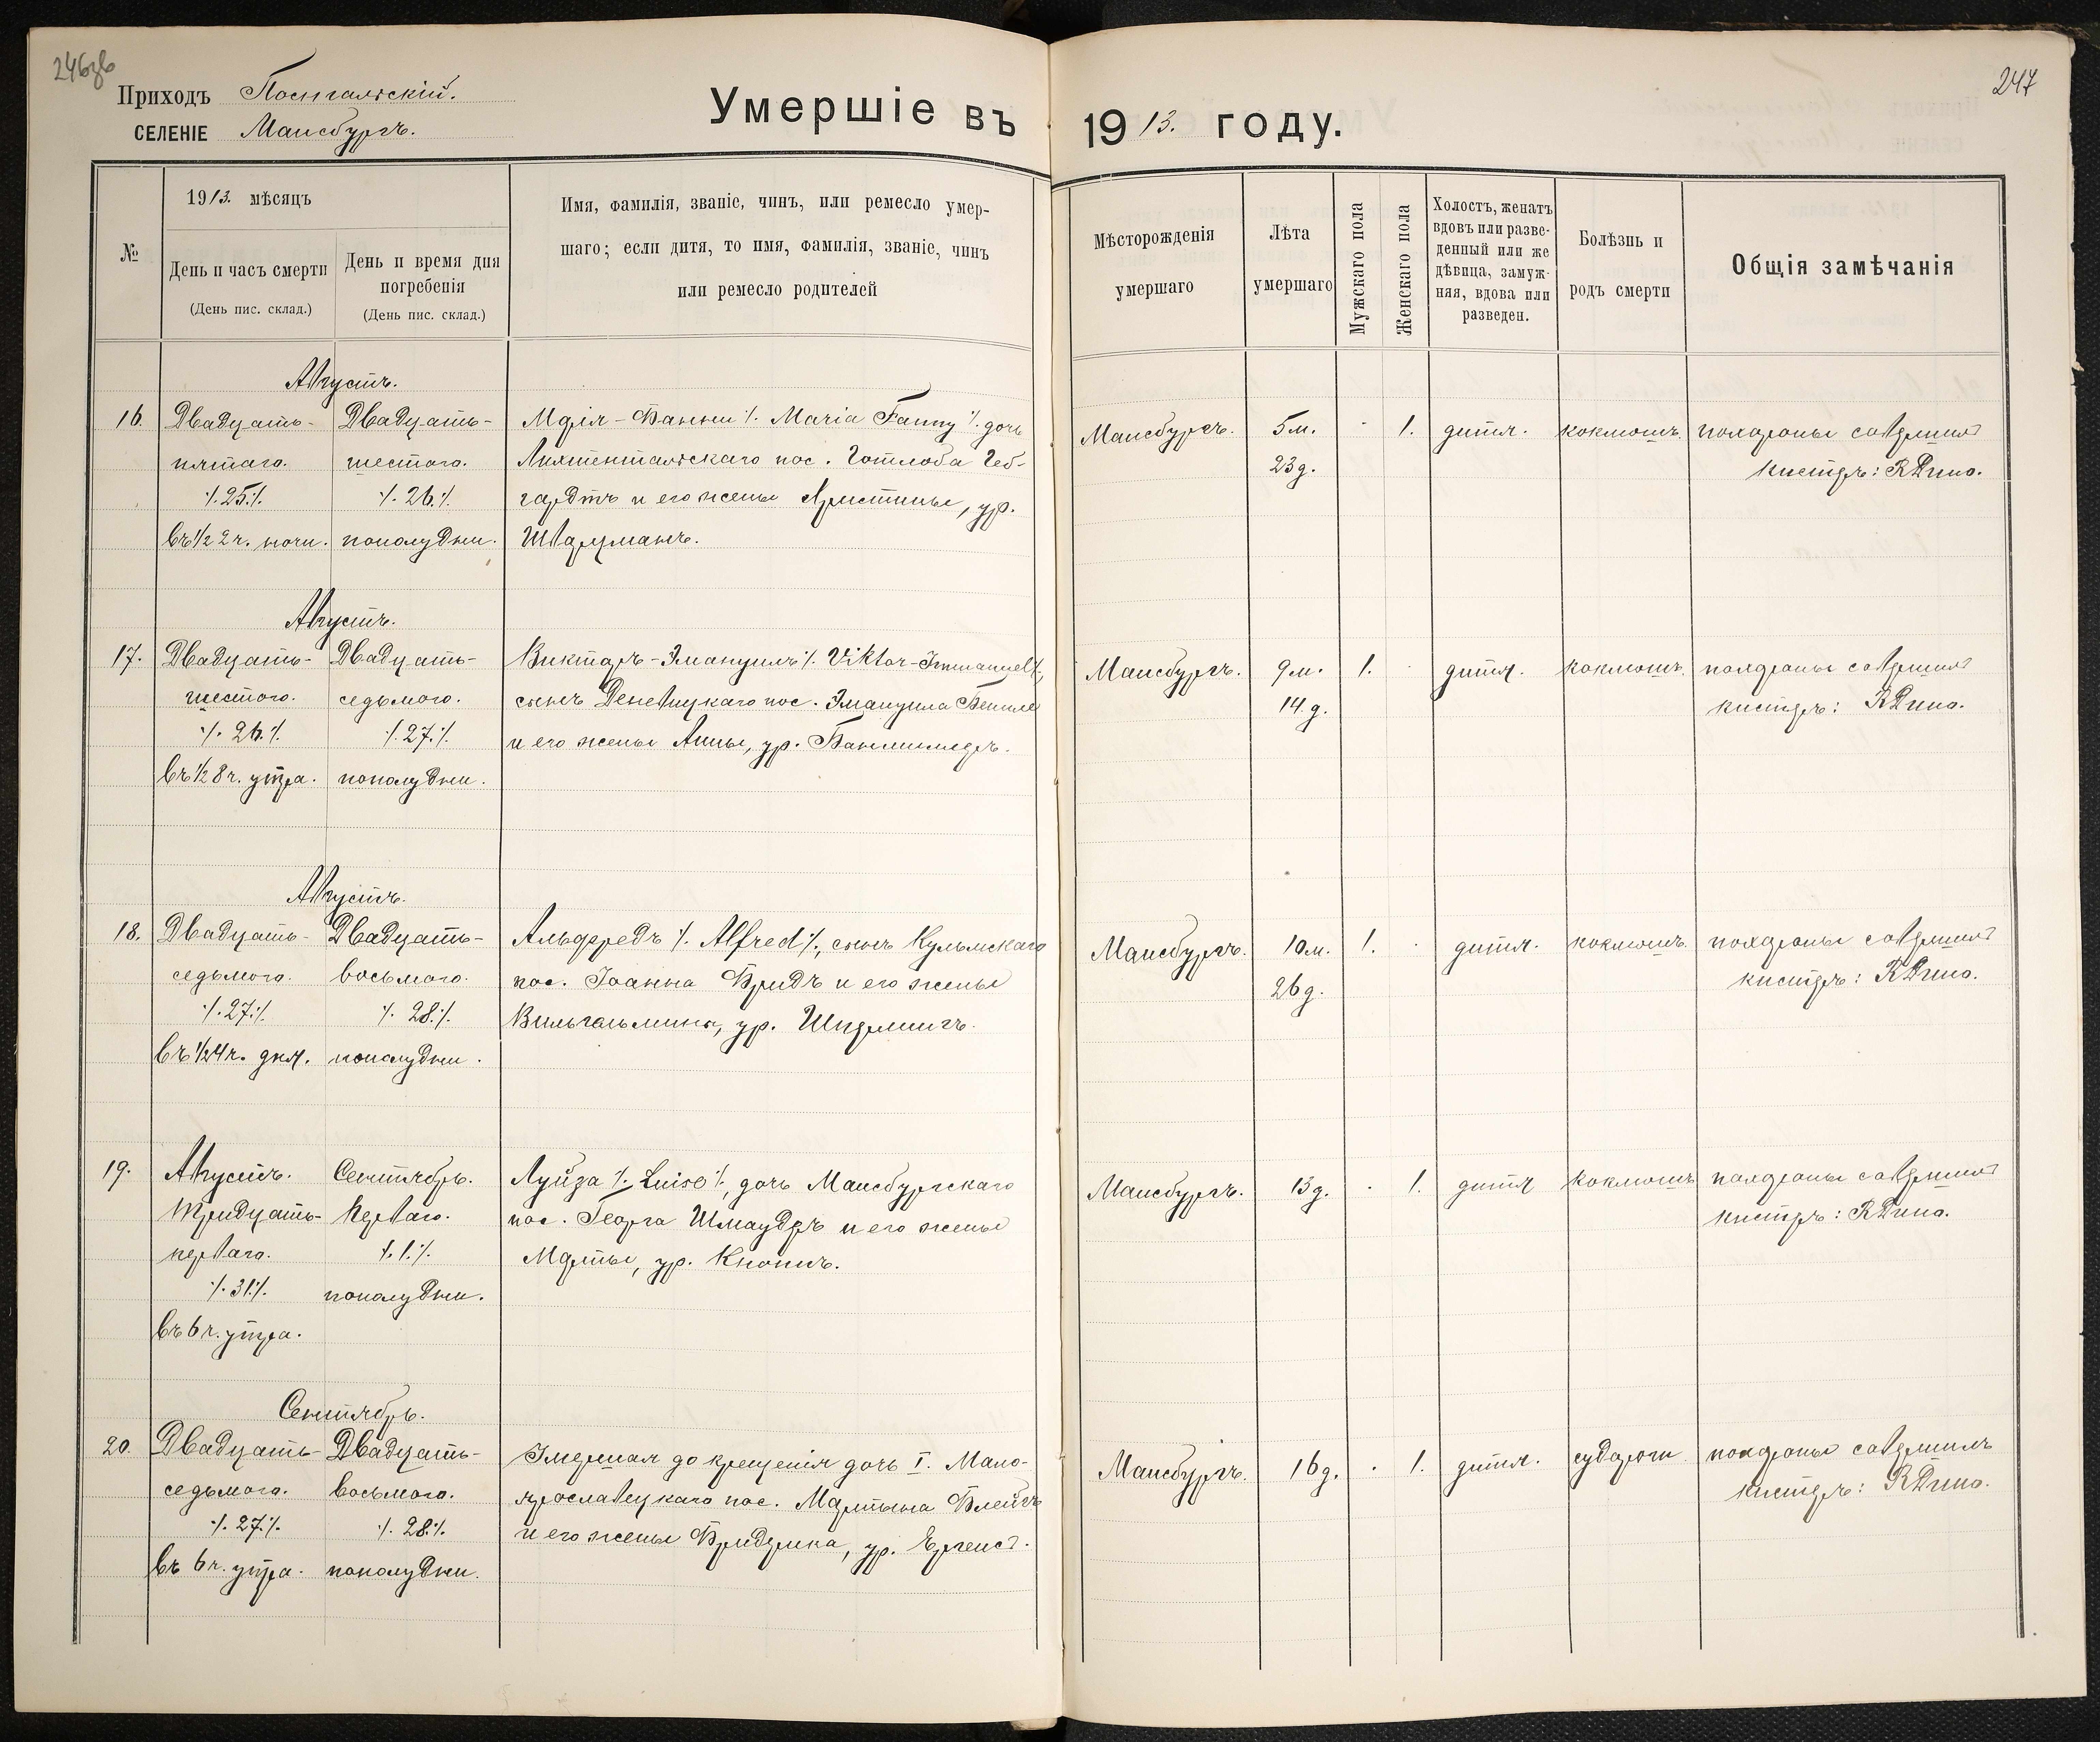 246зв
247
Приходъ Постальскій.
СЕЛЕНІЕ Мансбургъ.
Умершіе въ 1913. году.
№
1913. мѣсяцъ
День и часъ смерти
(День пис. склад.)
День и время дня
погребенія
(День пис. склад.)
Имя, фамилія, званіе, чинъ, или ремесло умер-
шаго; если дитя, то имя, фамилія, званіе, чинъ
или ремесло родителей
Мѣсторожденія
умершаго
Лѣта
умершаго
Мужскаго пола
Женскаго пола
Холостъ, женатъ
вдовъ или разве-
денный или же
дѣвица, замуж-
няя, вдова или
разведен.
Болѣзнь и
родъ смерти
Общія замѣчанія
Августъ.
16. Двадцать- Двадцать- Марія-Фанни ·/. Maria Fanny ·/. дочь Мансбургъ. 5м. · 1. дитя. коклюшъ. похороны совершилъ
пятаго. шестого. Лихтентальскаго пос. Готлоба Геб- 23д. кистеръ:
·/.25./. ·/.26./. гардтъ и его жены Христины, ур.
въ ½ 2 ч. ночи. пополудни. Шварцманъ.
Августъ.
17. Двадцать- Двадцать- Викторъ-Эмануилъ ·/. Viktor-Immanuel ·/., Мансбургъ. 9м. 1. · дитя. коклюшъ. похороны совершилъ
шестого. седьмого. сынъ Деневицкаго пос. Эмануила 14д. кистеръ:
·/.26./. ·/.27./. и его жены Анны, ур.
въ ½ 8 ч. утра. пополудни.
Августъ.
18. Двадцать- Двадцать- Альфредъ ·/. Alfred ·/., сынъ Кульмскаго Мансбургъ. 10м. 1. · дитя. коклюшъ. похороны совершилъ
седьмого. восьмого. пос. Іоанна Фридъ и его жены 26д. кистеръ:
·/.27./. ·/.28./. Вильгельмины, ур.
въ ½ 4 ч. дня. пополудни.
19. Августъ. Сентябрь. Луиза ·/. Luise ·/., дочь Мансбургскаго Мансбургъ. 13д. · 1. дитя коклюшъ похороны совершилъ
Тридцать- Перваго. пос. Георга Шмаудеръ и его жены кистеръ:
перваго. ·/.1./. Марты, ур. Кноппъ.
·/.31./. пополудни.
въ 6 ч. утра.
Сентябрь.
20. Двадцать- Двадцать- Умершая до крещенія дочь I. Мало- Мансбургъ. 16д. · 1. дитя. судороги. похороны совершилъ
седьмого. восьмого. ярославецкаго пос. Мартына кистеръ:
·/.27./. ·/.28./. и его жены Фридерика, ур.
въ 6 ч. утра. пополудни.